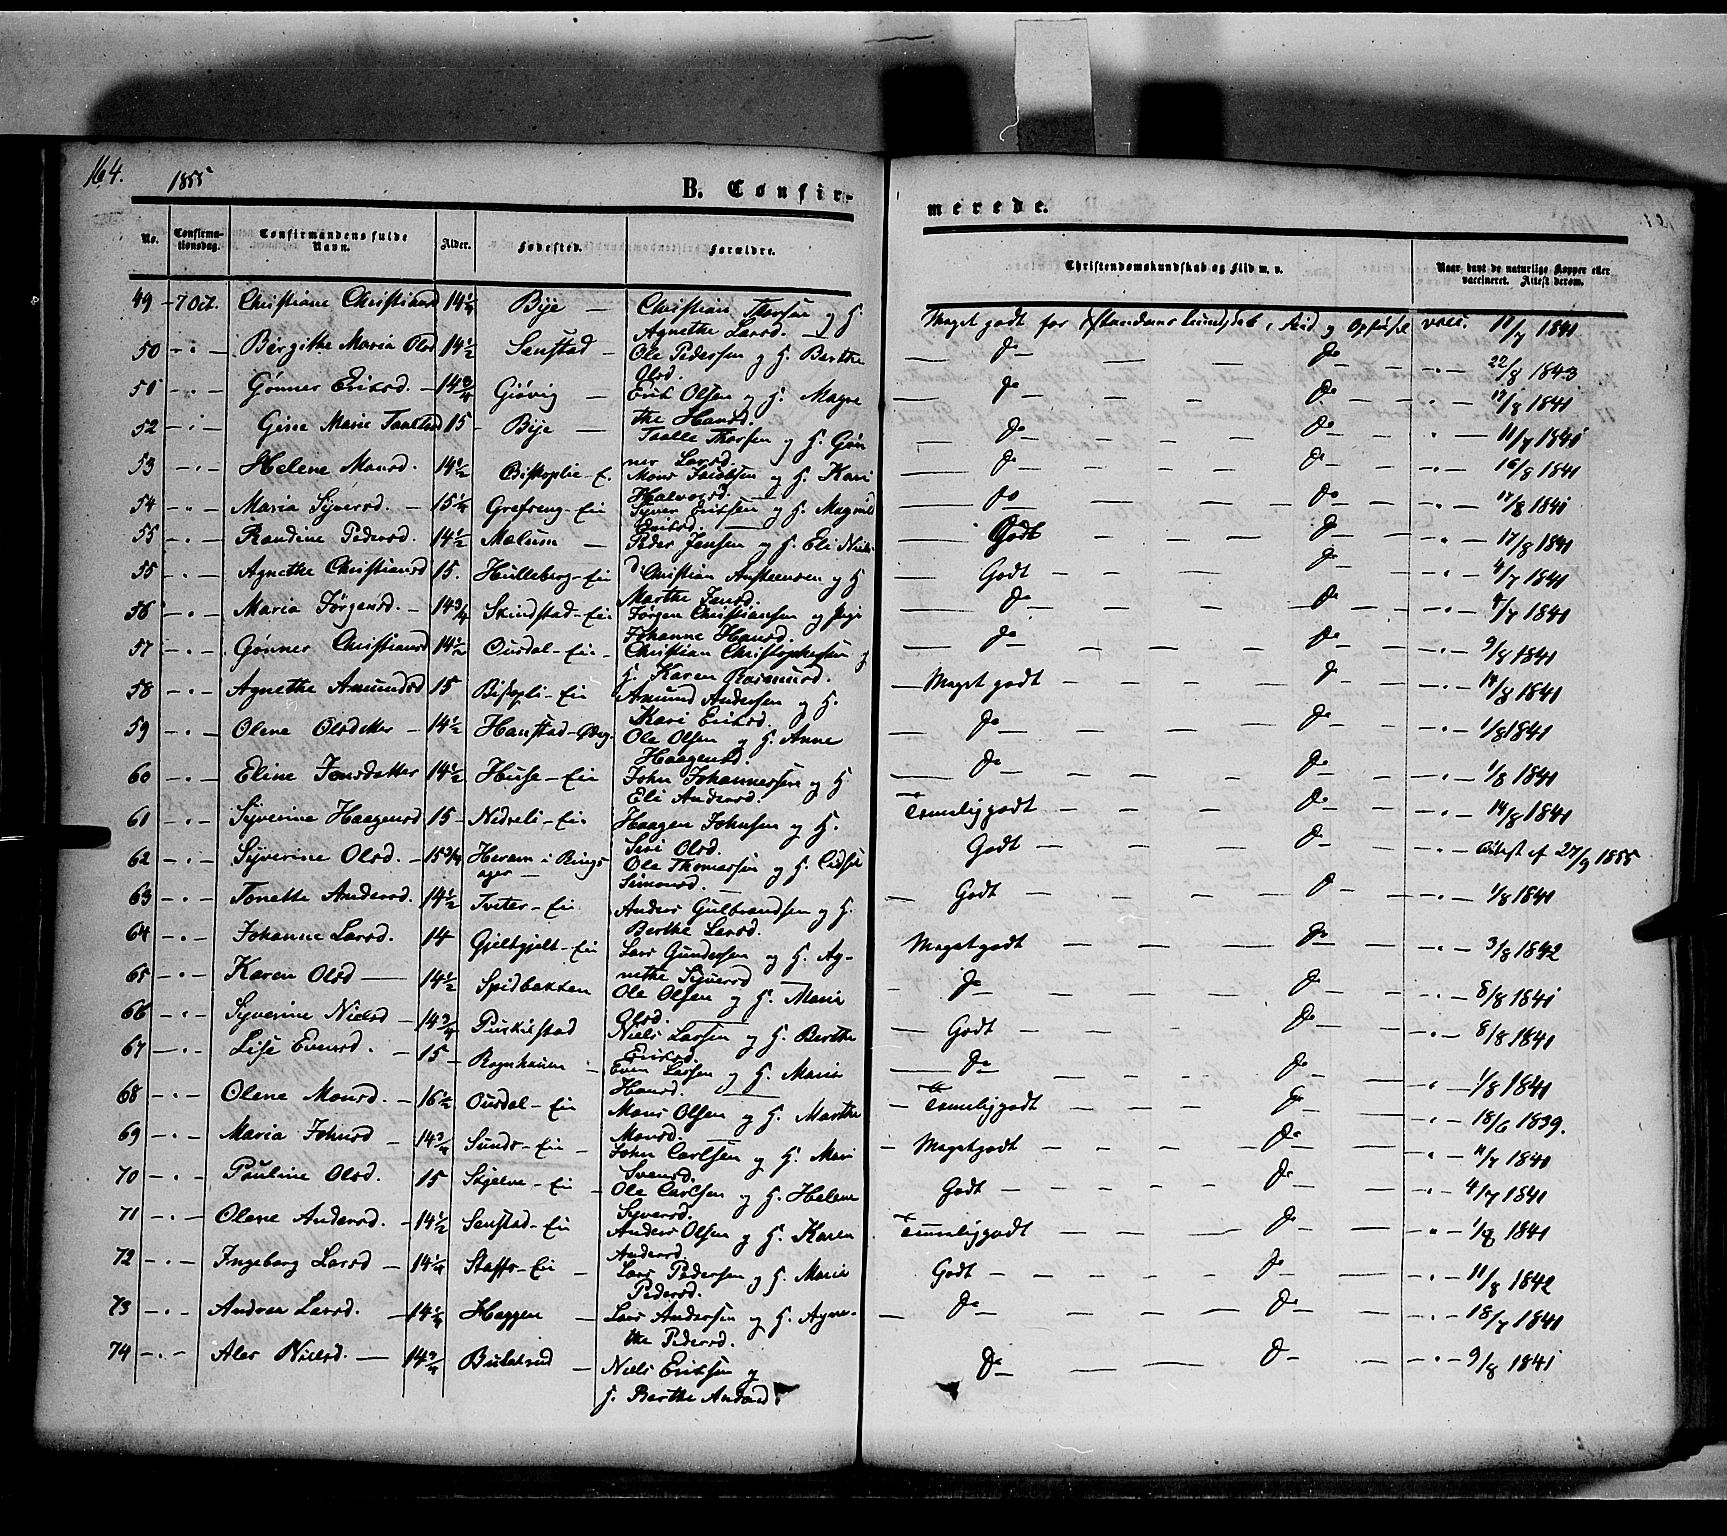 164.
1855
B. Confir-
merede.
No.
Confirma-
tionsdag.
Confirmandens fulde
Navn.
Alder.
Fødested.
Forældre.
Christendomskundskab og Flid m. v.
Naar havt de naturlige Kopper eller
vaccineret. Attest derom.
49 - 7 Oct. Christiane Christiansd 14 1/4 Bije — Christian Thorsen og H. Meget godt for Kundskab, Flid og Opførsel vacc. 11/7 1841
Agnethe Larsd. —
50 - " - Birgithe Maria Olsd 14 1/2 Senstad — Ole Pedersen og H. Berthe — Do — — — Do — - " - 22/8 1843
Olsd.
51 - " - Gønner Eriksd. — 14 3/4 Giøvig — Erik Olsen og H. Magre — Do — — — Do — - " - 17/8 1841
the Hansd.
52 - " - Gine Marie Taalesd 15 - Bije — Taalle Thorsen og H. Gøn — Do — — — Do — " — 11/7 1841
ner Larsd.
53 - " - Helene Monsd. 14 1/2 Bistoplie - E. Mons Jacobsen og H. Kari — Do — — — Do — - " - 16/8 1841
Halvorsd.
54 - " - Maria Syversd. — 15 1/4 Grefseng - Ei Syver Eriksen og H. Magnild — Do — — — Do — - " - 17/8 1841
Eriksd. —
55 - " - Randine Pedersd. 14 1/2 Mælum — Peder Jensen og H. Eli Niels — Godt — — — Do — " — 17/8 1841
55 - " - Agnethe Christiansd 15. Hulleberg - Ei d Christian Anstensen og H — Godt — — — Do — - " - 4/7 1841
Marthe Jensd.
56 - " - Maria Jørgensd. — 14 3/4 Skindstad - Ei Jørgen Christiansen og Pige — Do — — — Do — - " - 4/7 1841
Johanne Hansd.
57 - " - Gønner Christiansd 14 1/2 Ourdal - Ei - Christian Christophersen og — Do — — — Do — - " - 9/8 1841
H. Karen Rasmusd.
58 - " - Agnethe Amundsd 15 Bistopli - Ei Amund Andersen og H. — Meget godt — — — Do — - " - 14/8 1841
Kari Eriksd.
59 - " - Olene Olsdatter — 14 1/2 Hanstad - Ole Olsen og H. Anne — Do — — — Do — - " - 1/8 1841
Haagensd.
60 - " - Eline Jonsdatter 14 1/2 Huse - Ei John Johannessen og H — Do — — — Do — - " - 1/8 1841
Eli Andersd.
61 - " - Syverine Haagensd 15 - Nedreli - Ei Haagen Johnsen og H. Temeliggodt — — — Do — - " - 14/8 1841
Siri Olsd.
62 - " - Syverine Olsd. — 15 3/4 Heram i Rings Ole Thomassen og H. Lidset Godt — — — Do — Attest af 27/9 1855
ager — Simonsd. —
63 - " - Tonette Andersd. 14 1/2 Tveter - Ei Anders Gulbrandsen og H. — Godt — — — Do — - " - 1/8 1841
Berthe Larsd.
64 - " - Johanne Larsd. 14 Gjeltgjelt - Ei Lars Gundersen og H. Ag- Megetgodt — — — Do — - " - 3/8 1842
nethe Syversd
65 - " - Karen Olsd — 14 1/2 Spidbakken Ole Olsen og H. Maria — Do — — — Do — - " - 8/8 1841
Olsd.
66 - " - Syverine Nielsd — 14 3/4 Purkilstad Niels Larsen og H. Berthe Godt — — — Do — - " - 8/8 1841
Eriksd.
67 - " - Lise Evensd. — 15 - Rognhaum - Even Larsen og H. Maria — Do — — — Do — " — 1/8 1841
Hansd. —
68 - " - Olene Monsd. — 16 1/2 Ourdal - Ei Mons Olsen og H. Marthe — Temeliggodt — — — Do — - " - 18/6 1839.
Monsd.
69 - " - Maria Johnsd — 14 3/4 Sunds - Ei - John Carlsen og H. Mari — Megetgodt — — — Do — - " - 11/7 1841
Svensd.
70 - " - Pauline Olsd. 15 Skjelve - Ei - Ole Carlsen og H. Helene Godt — — — Do — - " - 4/7 1841
Syversd.
71 - " - Olene Andersd. — 14 1/2 Senstad - Ei Anders Olsen og H. Karen Temmeliggodt — — — Do — " — 1/8 1841
Andersd.
72 - " - Ingeborg Larsd — 14 1/4 Staffs - Ei — Lars Pedersen og H. Maria Godt — — — Do — - " - 11/8 1842
Pedersd.
73 - " - Andrea Larsd. — 14 1/4 Haggen — Lars Andersen og H. Agne- — Do — — — Do — - " - 18/7 1841
the Pedersd.
74 - " - Ales Nielsd. — 14 3/4 Bulatrud — Niels Eriksen og Do — — — Do — - " - 9/8 1841
H. Berthe Andersd